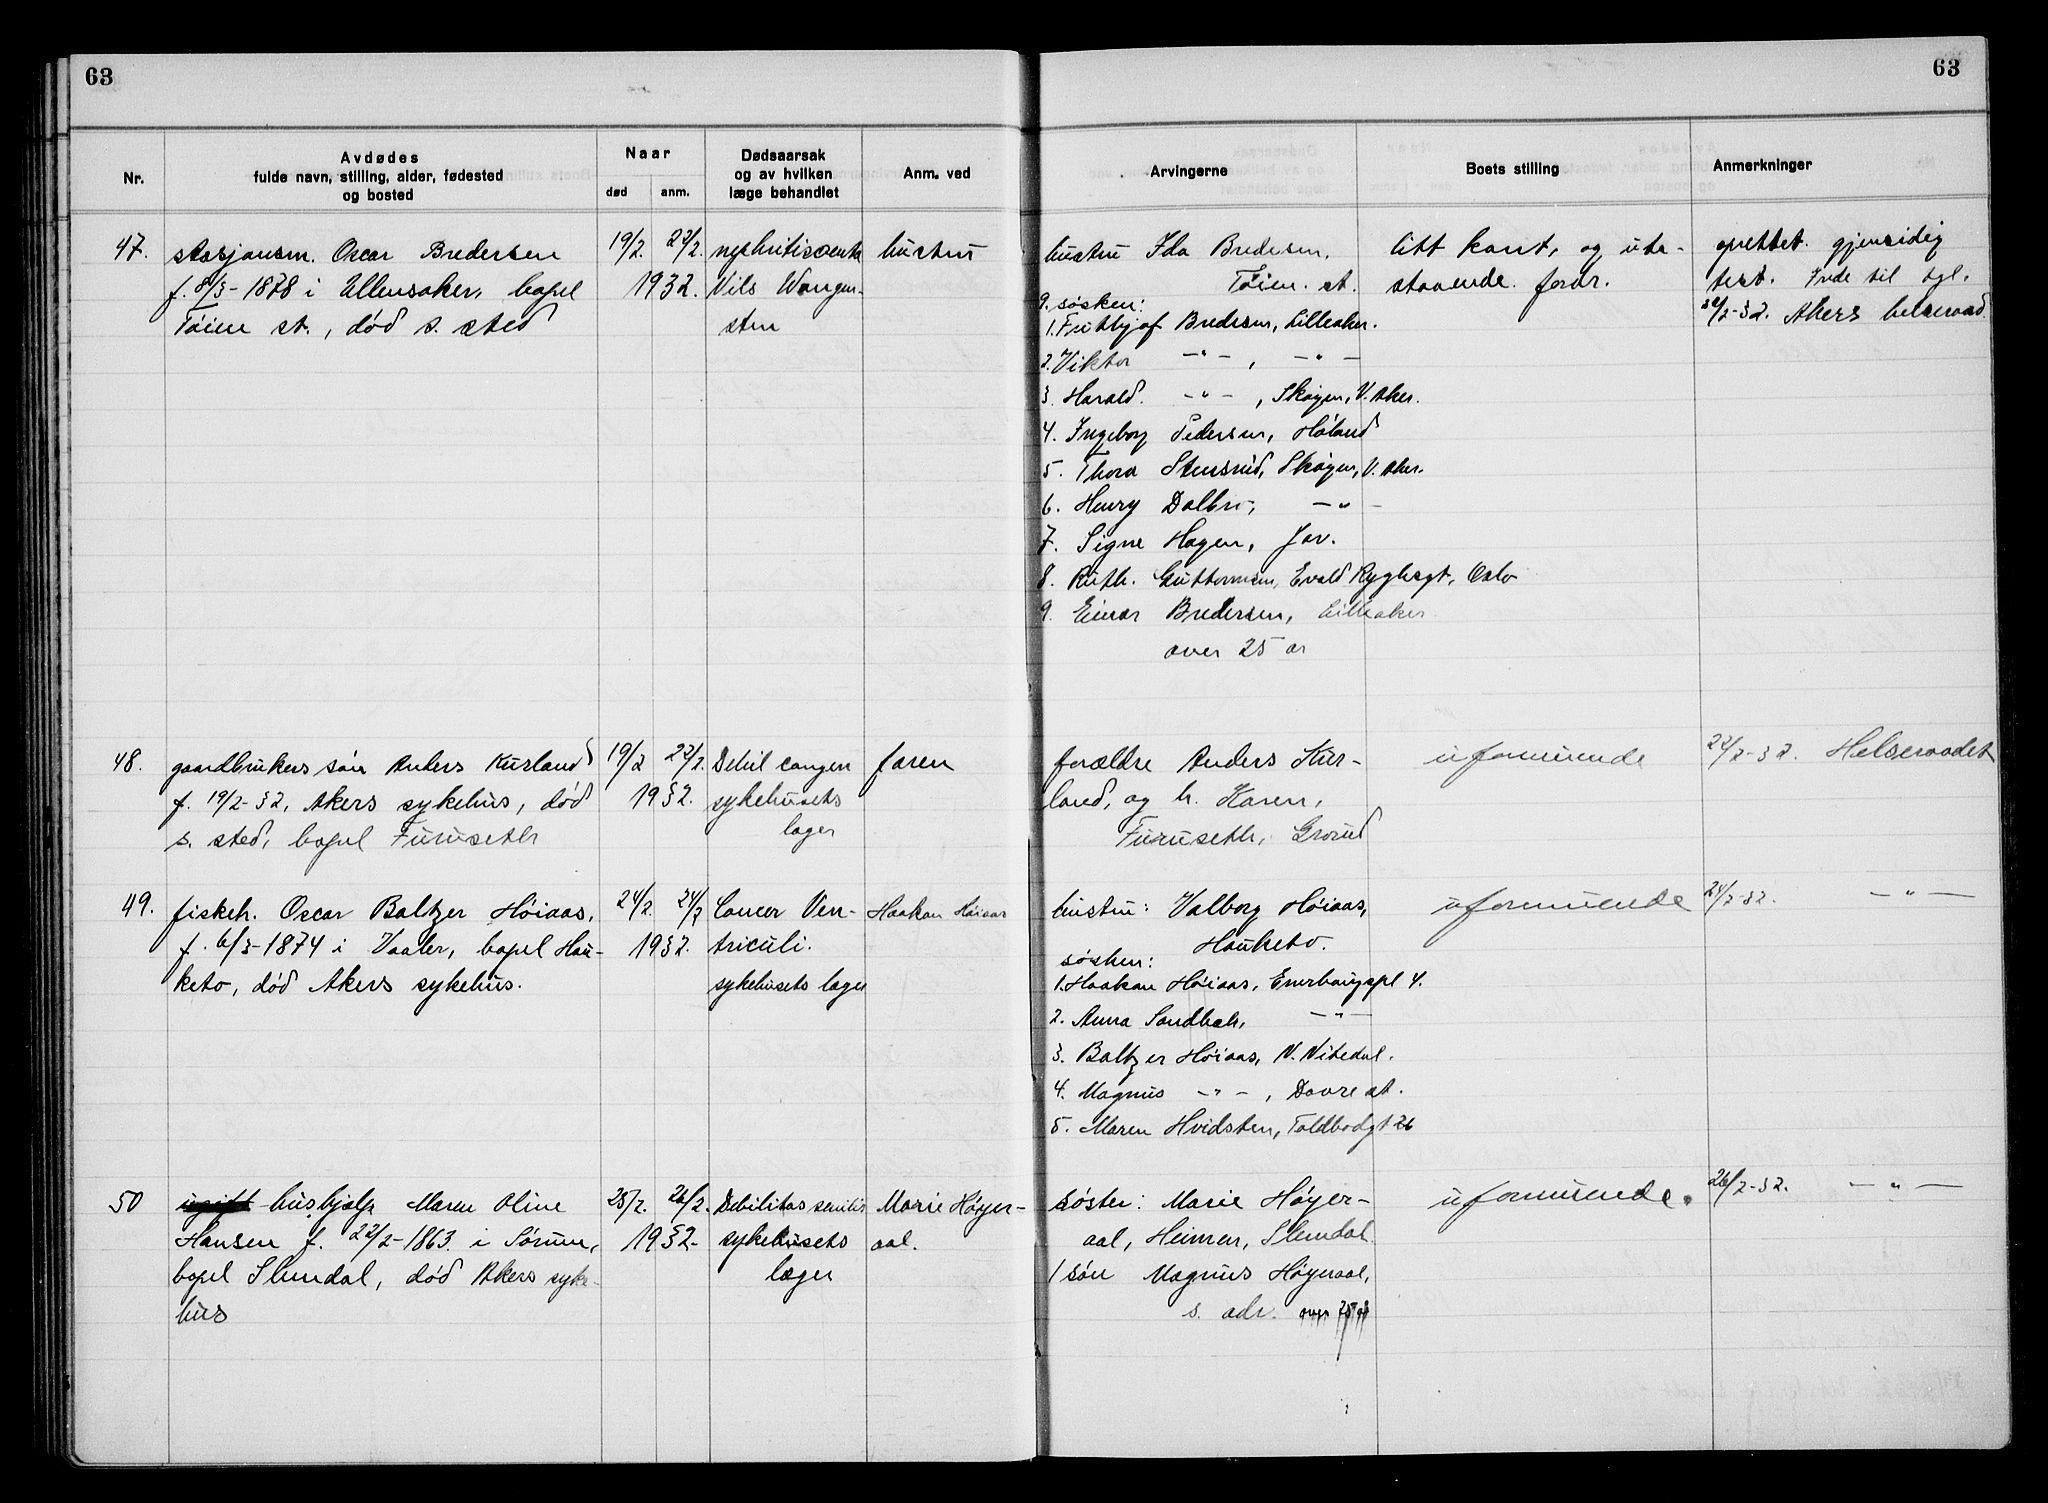 63
63
Nr.
Avdødes
fulde navn, stilling, alder, fødested
og bosted
Naar
død
anm.
Dødsaarsak
og av hvilken
læge behandlet
Anm. ved
Arvingerne
Boets stilling
Anmerkninger
47.
stasjonsm. Oscar Bredersen
f. 8/3-1878 i Ullensaker, bopel
Tøien st., død s. sted
19/2. 22/2.
1932.
Nils Wangen-
sten
hustru
hustru Ida Bredesen,
Tøien. st.
9. søsken:
1. Frithjof Bredesen, Lilleaker.
2. Viktor —"— , —"—
3. Harald. —"— , Skøyen, V. Aker.
4. Ingeborg Pedersen, Høland
5. Thora Stensrud, Skøyen, V. Aker.
6. Henry Dalbri, —"—
7. Signe Hagen, Jar.
8. Ruth. Guttormsen, Evald Ryghsgt, Oslo
9. Einar Bredersen, Lilleaker
over 25 år
litt kont, og ute-
staaende. fordr.
oprettet. gjensidig
test.
Akers helseraad.
48.
gaardbrukers søn Anders Kurland
f. 19/2-32, Akers sykehus, død
s. sted, bopel Furuseth
19/2 22/2.
1932.
Debil congen
sykehusets
læger
faren
forældre Anders Kur-
land, og h. Karen,
Furuseth, Grorud
uformuende
22/2-32. Helseraadet
49.
fiskeh. Oscar Baltzer Høiaas,
f. 6/3-1874 i Vaaler, bopel Hau-
keto, død Akers sykehus.
24/2. 24/2
1932.
Cancer Ven-
triculi.
sykehusets læger
Haakon Høiaas
hustru: Valborg Høiaas,
Hauketo.
søsken:
1. Haakon Høiaas, Enerhaugspl 4.
2. Anna Sandbæk, —"—
3. Baltzer Høiaas, N. Nitedal.
4. Magnus —"— , Dovre st.
5. Maren Hvidsten, Toldbodgt 26
uformuende
24/2-32. —"—
50
ugift hushjelp Maren Oline
Hansen f. 22/2-1863. i Sørum,
bopel Slemdal, død Akers syke-
hus
25/2. 26/2.
1932-
Debilitas senilis
sykehusets
læger
Marie Høyer-
aal.
søster: Marie Høyer-
aal, Heimen, Slemdal.
1 søn Magnus Høyeraal,
s. adr. over 25 år
uformuende.
26/2-32. —"—